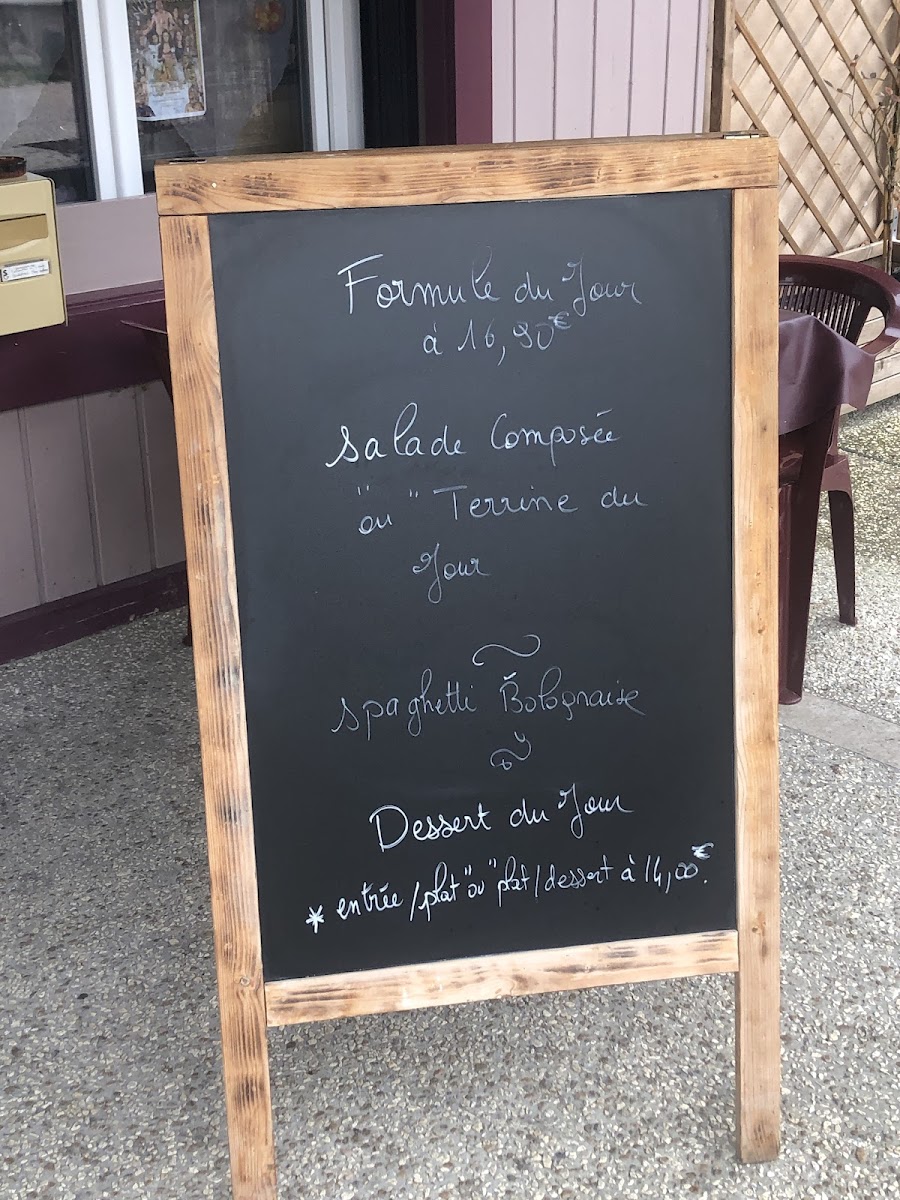 Formule du Jour
à 16,90€
Salade Composée
"ou" Terrine du
Jour
Spaghetti Bolognaise
Dessert du Jour
* entrée/plat "ou" plat/dessert à 14,00€.